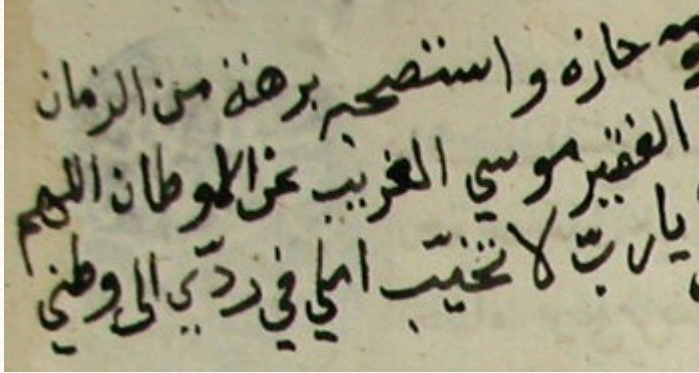 حازه واستصحبه برهنة من الزمان
الفقير موسي الغريب عن الاوطان اللهم
يا ربّ لا تخيّب املي في ردّي الى وطني